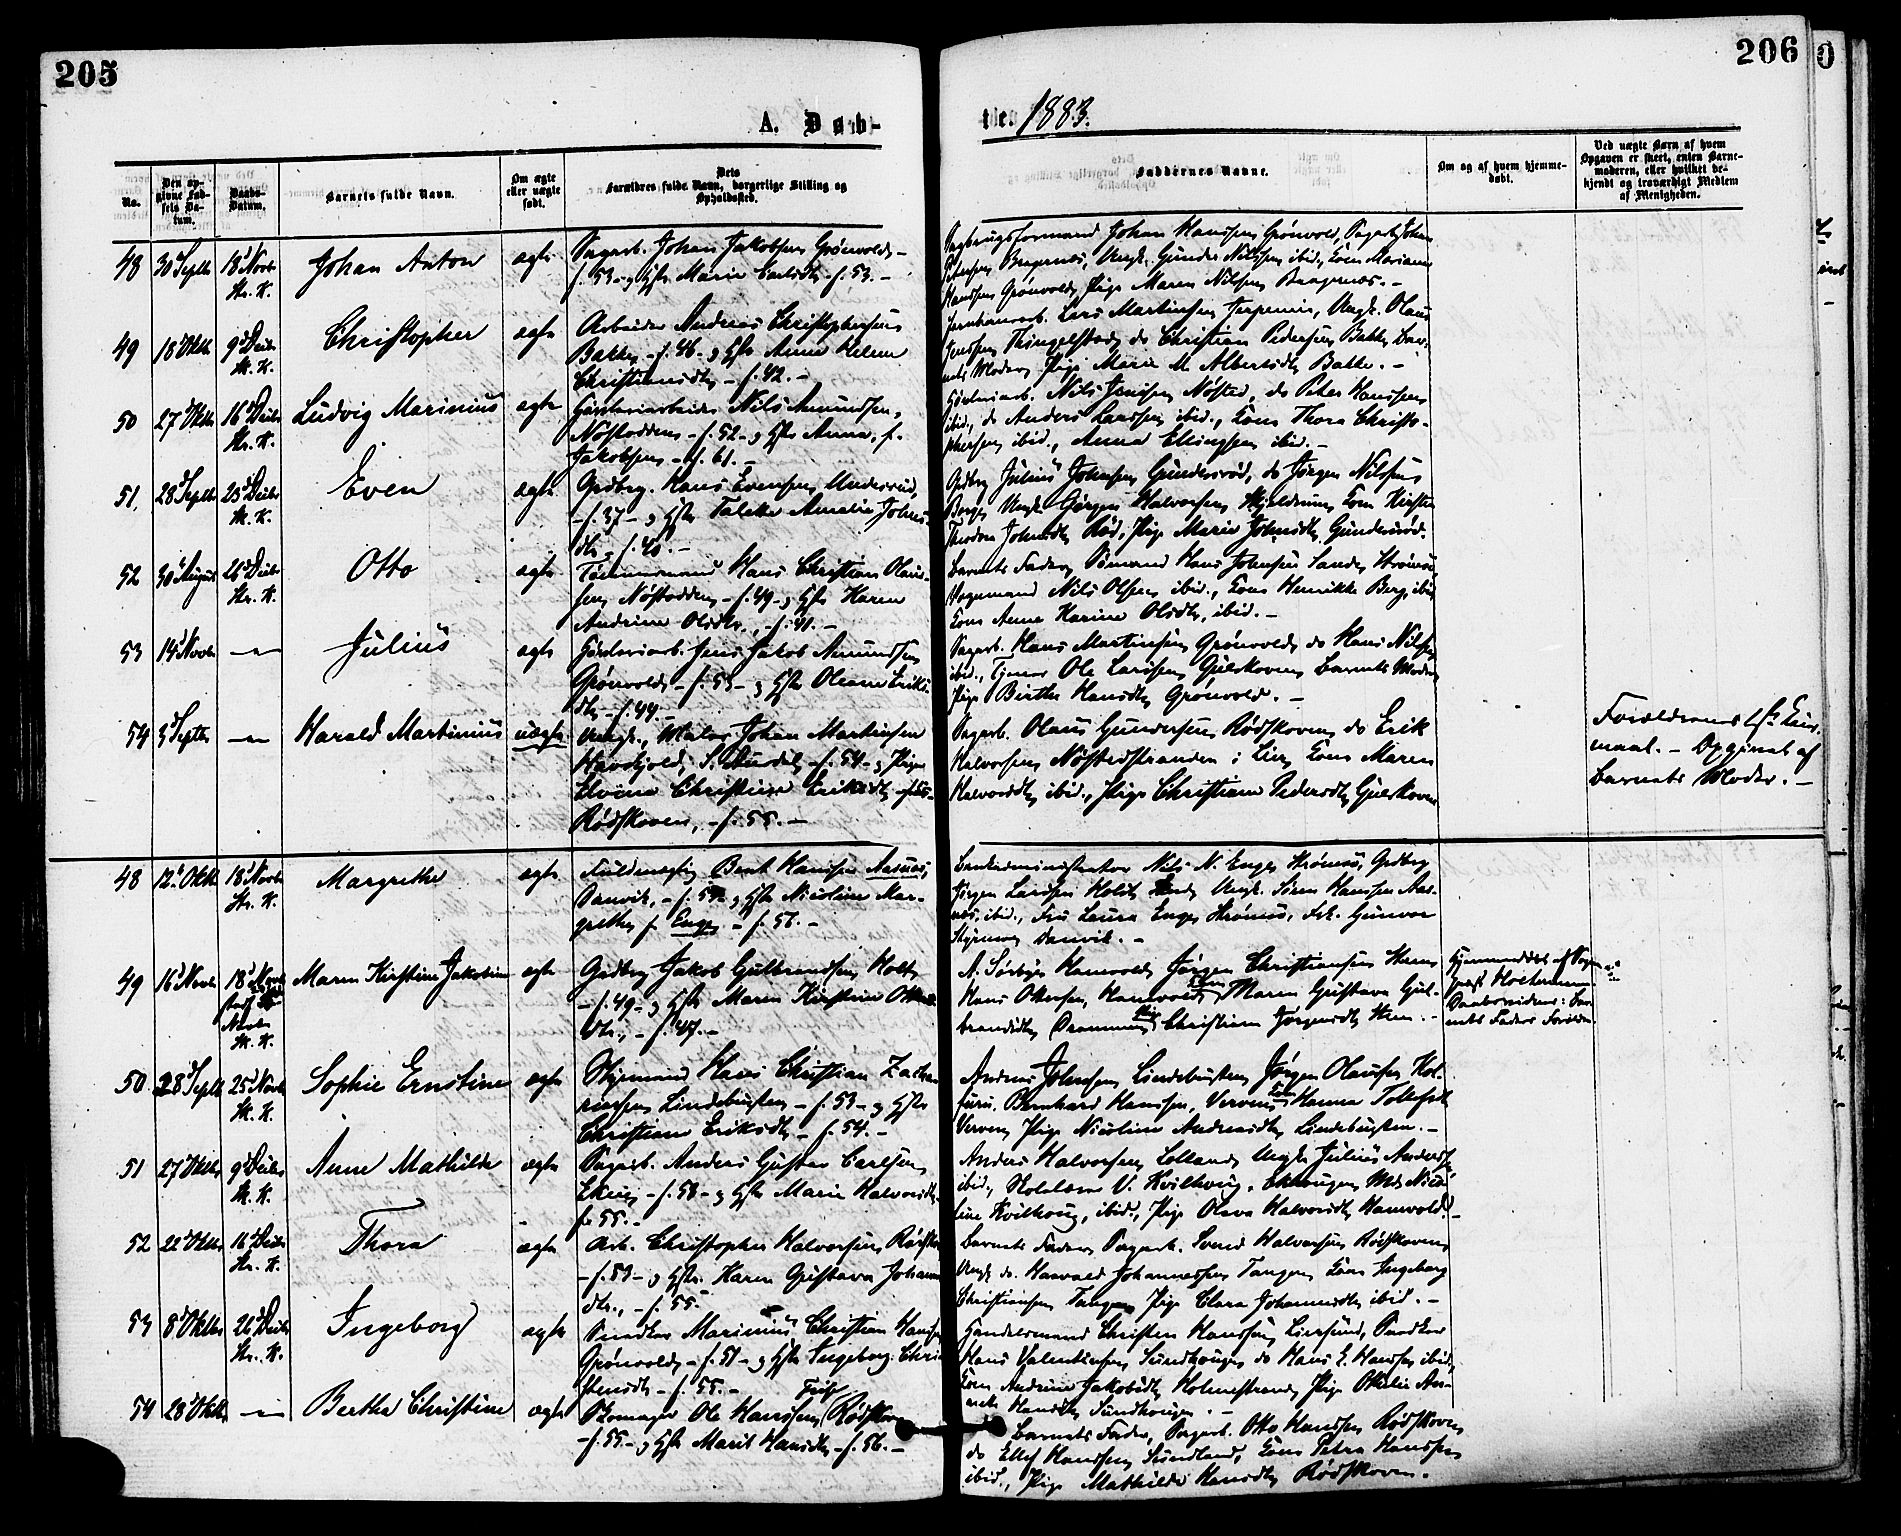 205
206
A. Døb-
te. 1883.
No.
Den op-
givne Fød-
sels Da-
tum.
Daabs-
Datum.
Barnets fulde Navn.
Om ægte
eller uægte
født.
Dets
Forældres fulde Navn, borgerlige Stilling og
Opholdssted.
Faddernes Navne.
Om og af hvem hjemme-
døbt.
Ved uægte Børn af hvem
Opgaven er skeet, enten Barne-
moderen, eller hvilket be-
kjendt og troværdigt Medlem
af Menigheden.
48 30 Septb 18 Novb Johan Anton ægte Sagarb. Johan Jakobsen Grønvold,
Str. K. f. 53 - og Hstr Maren Carlsdtr f. 53. -
Sagbrugsformand Johan Hansen Grønvold, Sagarb. Johan
Petersen Bragernes, Ungk. Gunder Nilssen ibid, Kone Mariane
Hanssen Grønvold, Pige Maren Nilsen Bragernes. -
49 18 Oktb 9 Decbr Christopher ægte Arbeider Andreas Christophersen
St. K. Bakke, - f. 46 - og Hstr Anne Helene
Christiansdtr - f. 42. -
Lars Martinsen Ungk. Olaus
Jenssen Thingelstad, do Christian Pedersen Bakke, Bar-
nets Moder, Pige Marie M. Albertsdtr Bakke. -
50 27 Oktb 16 Decbr Ludvig Marinius ægte Garveriarbeider Nils Amundsen,
Str. K. Nøstodden - f. 52 - og Hstr Anna, f.
Jakobsen - f. 61. -
Nils Jenssen Nøsted, do Peter Hanssen
ibid., do Anders Larssen ibid., Kone Thora Christo-
phersen ibid., Anna Ellingsen ibid. -
51. 28 Septb 25 Decbr Even ægte Grdbrg. Hans Evensen Undersrud,
St. K. - f. 37 - og Hstr Amalie Johns-
dtr - f. 40. -
Grdbrg Julius Johnsen Gundersrød, do Jørgen Nilssen
Berg, Ungk. Jørgen Halvorsen Kjeldrum, Kone Kirsten
Theodora Johnsdtr Rød, Pige Marie Johnsdtr Gundersrød.
52 30 August 26 Decbr Otto ægte Tømmermand Hans Christian Olaus-
Str. K. sen, Nøstodden - f. 49 - og Hstr Karen
Andrine Olsdtr., - f. 41. -
Barnets Fader, Sømand Hans Johnsen Sande, Strømsø,
Vognmand Nils Olsen ibid., Kone Henrikke Berg, ibid,
Kone Anne Karine Olsdtr, ibid. -
53 14 Novb - " - Julius ægte Garveriarb. Jens Jakob Amundsen
Grønvold, - f. 53 - og Hstr Oleane Eriks-
dtr - f. 44. -
Sagarb. Hans Martinsen Grønvold, do Hans Nilsen
ibid., Tjener Ole Larssen Gulskoven, Barnets Moder,
Pige Birthe Hansdtr Grønvold. -
54 3 Septb - " - Harald Martinius uægte Ungk., Maler Johan Martinsen
- f. 54 - og Pige
Elvine Christine Eriksdtr
Rødskoven, - f. 55. -
Sagarb. Olaus Gundersen Rødskoven, do Erik
Halvorsen Nøstedstranden i Lier, Kone Maren
Halvorsdtr ibid., Pige Christiane Pedersdtr Gulskoven
Forældrenes 1ste Leier-
maal. - Opgivet af
Barnets Moder. -
48 12 Oktb 18 Novb Margrethe ægte Fuldmægtig Bent Hanssen Aasnæs,
Str. K. Danvik, - f. 57 - og Hstr Nicoline Mar-
grethe f. Enge - f. 56. -
Bankadministrator Nils N. Enge, Strømsø, Grdbrg
Jørgen Larssen Holt Ungk. Søren Hanssen Aas-
næs, ibid., Fru Laura Enge Strømsø, Frk. Gunvor
Danvik. -
49 16 Novb 18 Novb Maren Kirstine Jakobine ægte Grdbrg Jakob Gulbrandsen, Holt
Novb - f. 49 - og Hstr Maren Kirstine Otters-
St. K. dtr., - f. 47. -
A. Sørbye Hamvold, Jørgen Christiansen
Hans Ottersen, Hamvold, Kone Maren Gustava Gul-
brandsdtr Drammen, Pige Christiane Jørgensdtr -
Hjemmedøbt af Sogne-
præst Holtermann
Daabsvidner: Bar-
nets Fader Forældre
50 28 Septb 25 Novb Sophie Ernstine ægte Styrmand Hans Christian Zacha-
St. K. riassen Lindebugten - f. 53 - og Hstr
Christiane Eriksdtr - f. 54. -
Andreas Johnsen, Lindebugten, Jørgen Olaussen Hol-
Bernhard Hanssen, Verven, Kone Hanna Tollefsdtr
Verven, Pige Nicoline Andreasdtr Lindebugten. -
51 27 Oktb 9 Decbr Anne Mathilde ægte Sagarb. Anders Gustav Carlsen,
St. K. Ekeng - f. 58 - og Hstr Marie Halvorsdtr,
f. 55. -
Anders Halvorsen, Lolland, Ungk. Julius Andersen
ibid., V. Kvilhoug, Mad. Nico-
line Kvilhoug, ibid., Pige Olava Halvorsdtr Hamvold. -
52 22 Oktb 16 Decbr Thora ægte Arb. Christopher Halvorsen Rødskoven
Str. K. - f. 59 - og Hstr. Karen Gustava Johannes-
dtr., - f. 55.
Barnets Fader, Sagarb. Svend Halvorsen Rødskoven,
Ungk. do. Harvald Johannessen Tangen, Kone Ingeborg
Christiansen Tangen, Pige Clara Johannesdtr ibid. -
53 8 Oktb 26 Decbr Ingeborg ægte Snedker Marinius Christian Hanssen
Str. K. Grønvold, - f. 51 - og Hstr Ingeborg Chri-
stensdtr - f. 55. -
Handelsmand Christen Hanssen, Liersund, Snedker
Hans Valentinsen Sundhougen, do Hans E. Hanssen ibid.,
Kone Andrine Jakobsdtr Holmestrand, Pige Othilie An-
Hansdtr Sundhougen. -
54 28 Oktb - " - Berthe Christine ægte Skomager Ole Hanssen, Rødskoven
- f. 55 - og Hstr Marit Hansdtr - f. 56. -
Barnets Fader, Sagarb. Otto Hanssen Rødskoven,
do Ellef Hanssen, Sundland, Kone Petra Hanssen
ibid., Pige Mathilde Hansdtr Rødskoven.